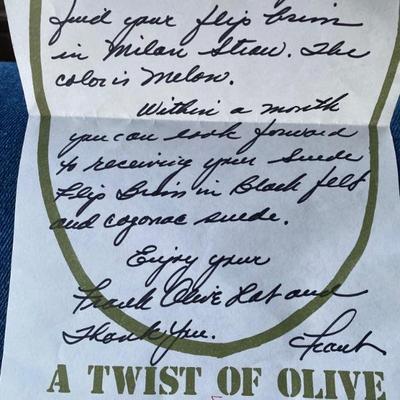 find your flip brim
in Milan Straw. The
color is Melon.
Within a month
you can look forward
to receiving your Suede
Flip Brim in Black felt
and cognac suede.
Enjoy your
Frank Olive Hat and
Thank You. Frank
A TWIST OF OLIVE